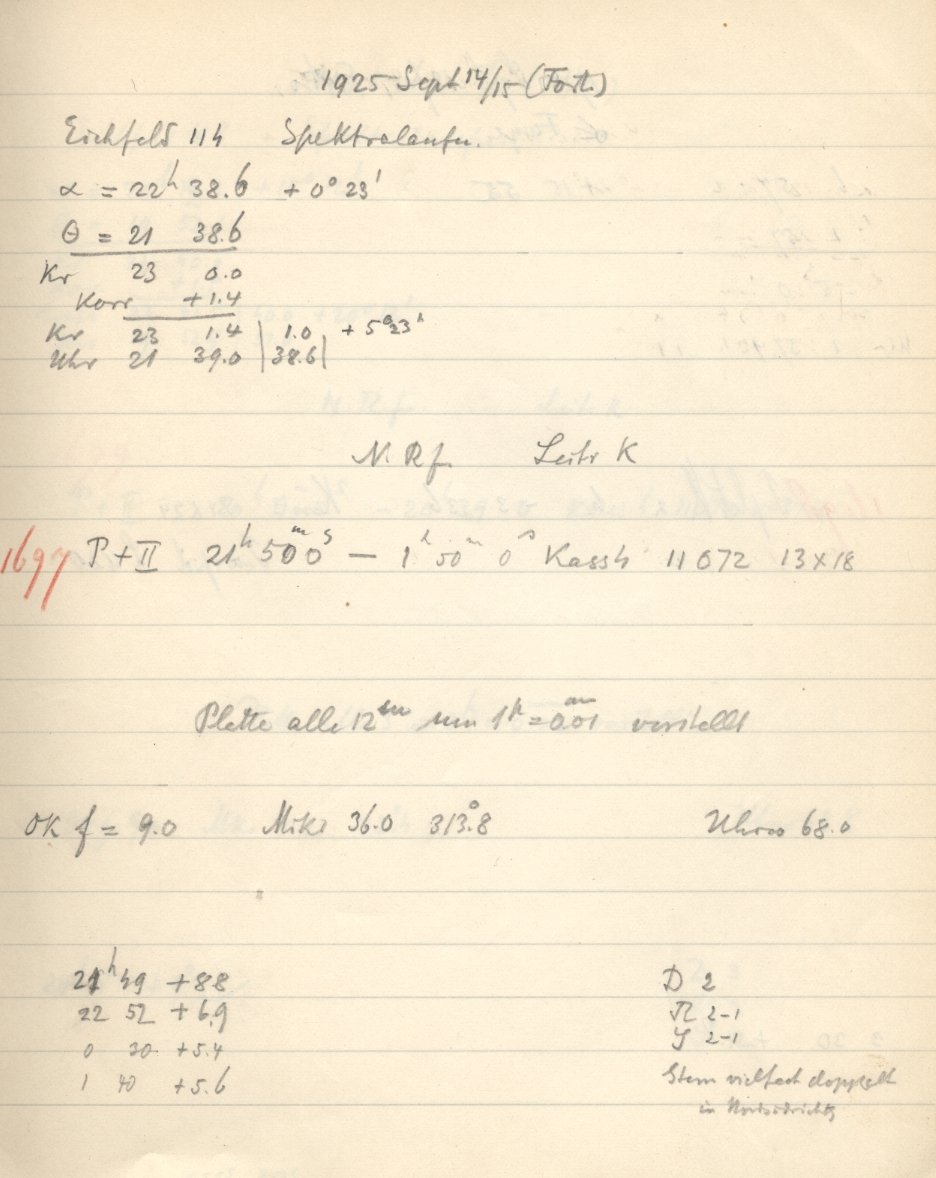 1925 Sept 14/15 (Forts.)
Eichfeld 114 Spektralaufn.
α = 22ʰ 38.6 + 0° 23'
θ = 21 38.6
Kr 23 0.0
Korr +1.4
Kr 23 1.4 | 1.0 + 5° 23'
Uhr 21 39.0 | 38.6 |
N. R f. Leitr K
1697 P + II 21ʰ 50ᵐ 0ˢ — 1ʰ 50ᵐ 0ˢ Kass 11072 13 x 18
Platte alle 12ᵐ um = 0.01 verstellt
OK f = 9.0 Mikr 36.0 313°.8 68.0
21ʰ 49 +8.8
22 52 +6.9
0 30 +5.4
1 40 +5.6
D 2
R 2-1
S 2-1
Stern vielfach doppelt
in